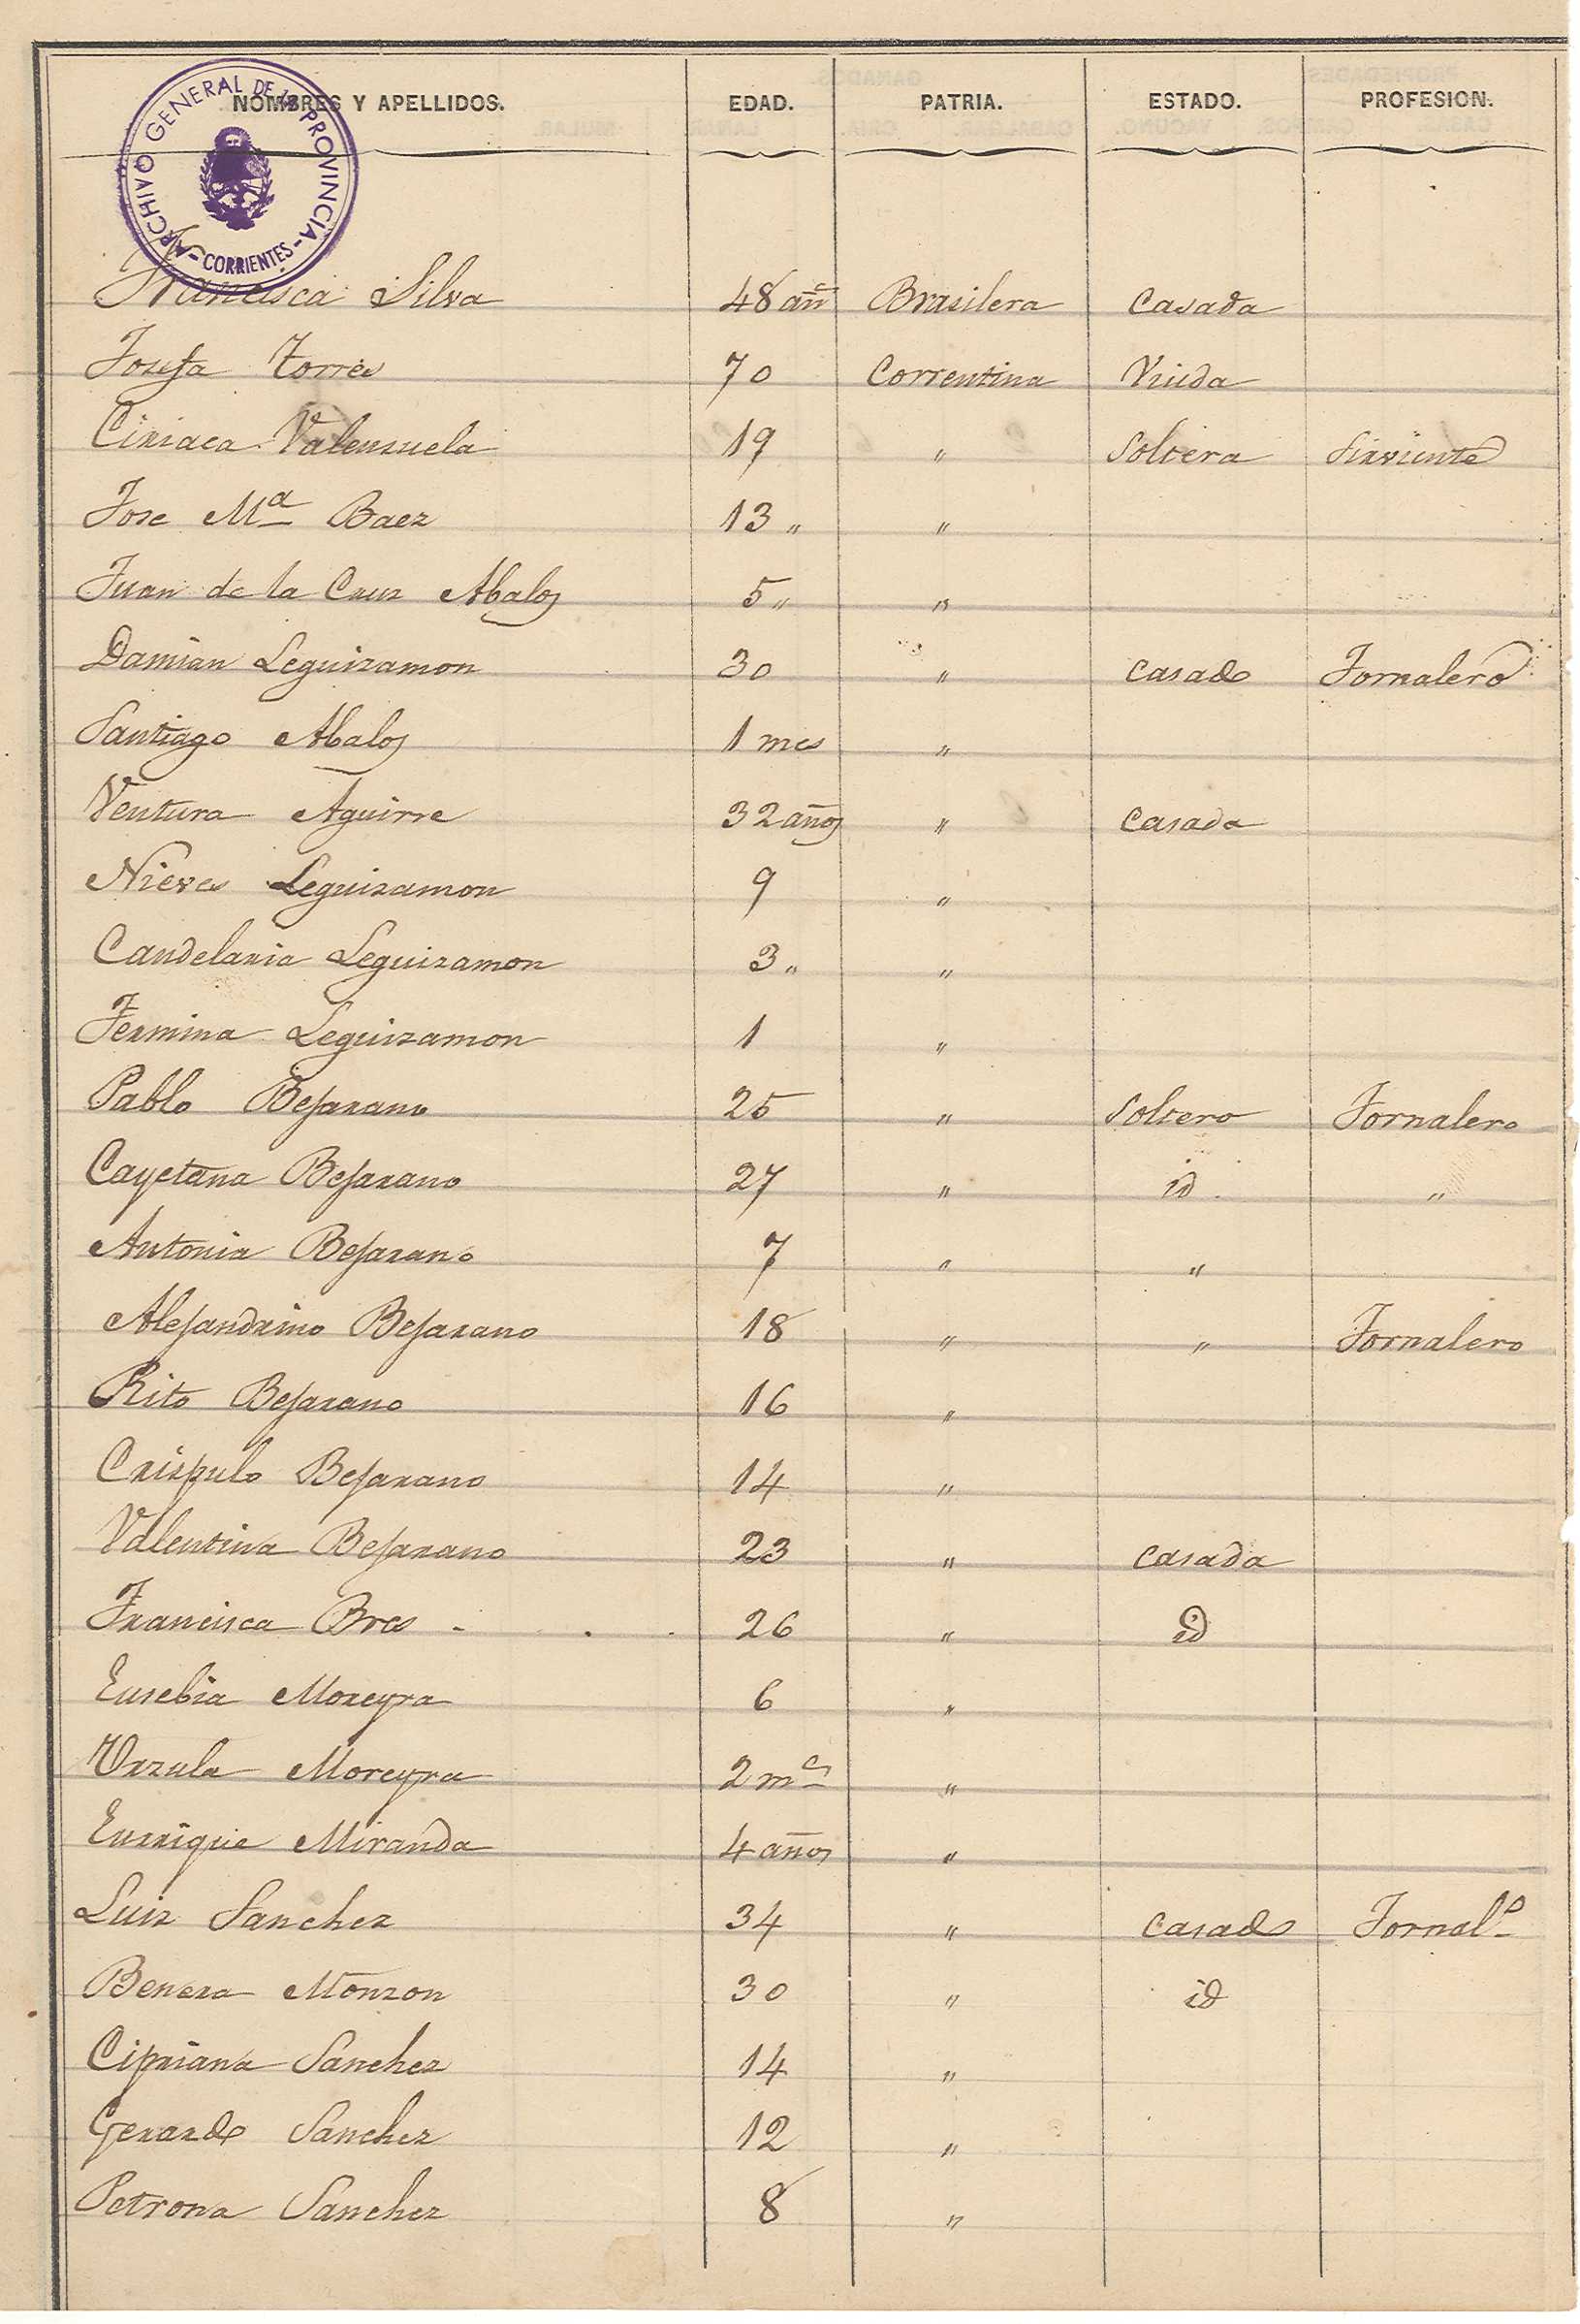 NOMBRES Y APELLIDOS. EDAD. PATRIA. ESTADO. PROFESION.
ARCHIVO GENERAL DE LA PROVINCIA
- CORRIENTES -
Francisca Silva 48 añs Brasilera Casada
Josefa Torres 70 Correntina Viuda
Ciriaca Valenzuela 19 " Soltera Sirviente
Jose Ma Baez 13 " "
Juan de la Cruz Abalos 5 " "
Damian Leguizamon 30 " Casado Jornalero
Santiago Abalos 1 mes "
Ventura Aguirre 32 años " Casada
Nieves Leguizamon 9 "
Candelaria Leguizamon 3 " "
Fermina Leguizamon 1 "
Pablo Bejarano 25 " Soltero Jornalero
Cayetana Bejarano 27 " id "
Antonia Bejarano 7 " "
Alejandrino Bejarano 18 " " Jornalero
Rito Bejarano 16 "
Crispulo Bejarano 14 "
Valentina Bejarano 23 " Casada
Francisca Bres 26 " id
Eusebia Moreyra 6 "
Urzula Moreyra 2 ms "
Enrrique Miranda 4 años "
Luiz Sanchez 34 " Casado Jornalo
Benera Monzon 30 " id
Cipriana Sanchez 14 "
Gerardo Sanchez 12 "
Petrona Sanchez 8 "